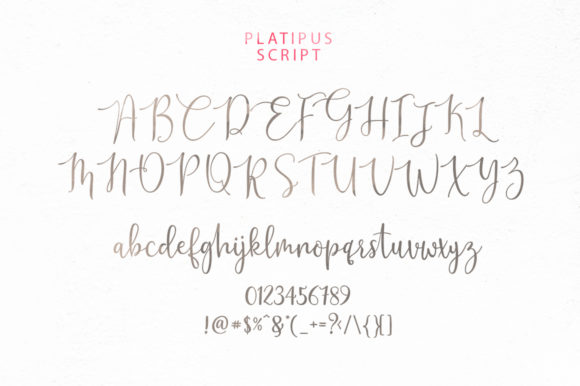 PLATIPUS
SCRIPT
ABCDEFGHIJKL
MNOPQRSTUVWXYZ
abcdefghijklmnopqrstuvwxyz
0123456789
!@#$%^&*(_+=?‹/\{}[]